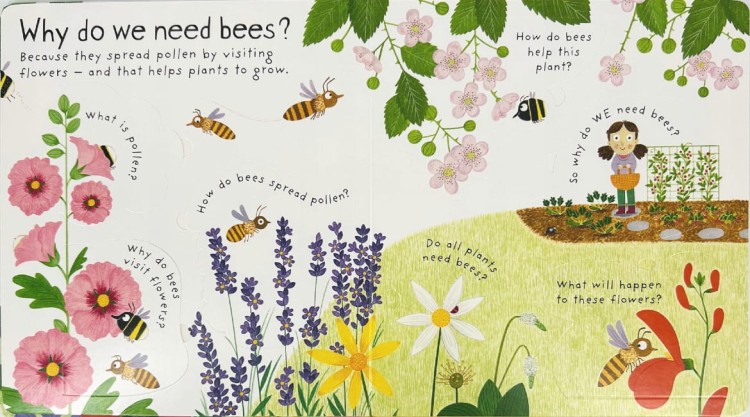 Why do we need bees?
Because they spread pollen by visiting
flowers – and that helps plants to grow.
How do bees
help this
plant?
What is pollen?
So why do WE need bees?
How do bees spread pollen?
Why do bees
visit flowers?
Do all plants
need bees?
What will happen
to these flowers?